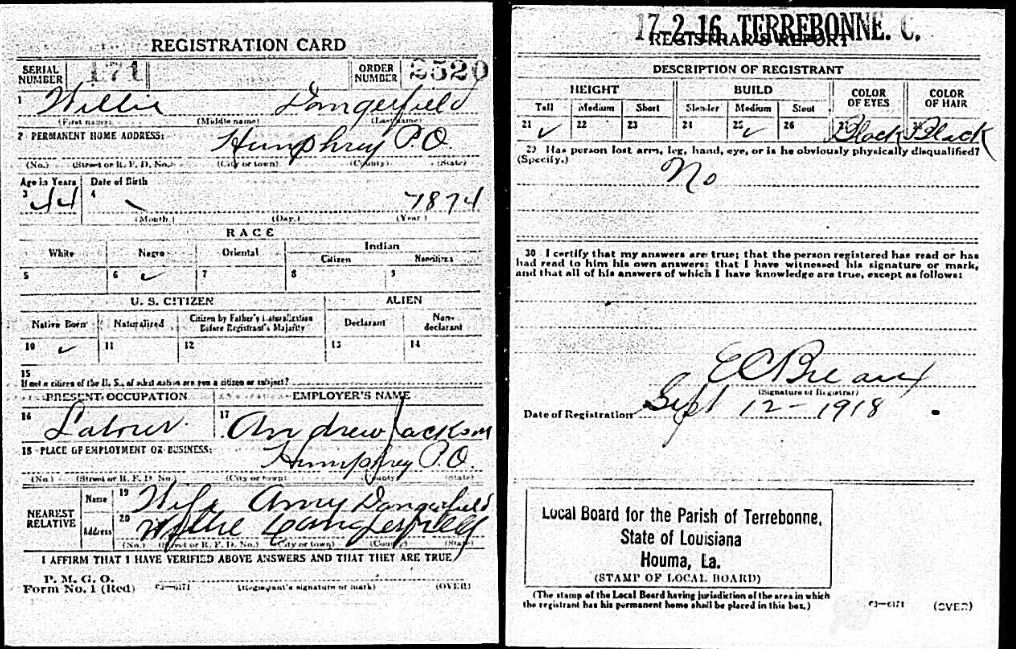 REGISTRATION CARD
SERIAL NUMBER 171 ORDER NUMBER 2520
1 Willie Dangerfield
(First name) (Middle name) (Last name)
2 PERMANENT HOME ADDRESS:
Humphrey P.O.
(No.) (Street or R. F. D. No.) (City or town) (County) (State)
Age in Years Date of Birth
3 44 4 1874
(Month.) (Day.) (Year.)
RACE
White Negro Oriental Indian
Citizen Noncitizen
5 6 ✓ 7 8 9
U. S. CITIZEN ALIEN
Native Born Naturalized Citizen by Father's Naturalization Before Registrant's Majority Declarant Non-declarant
10 ✓ 11 12 13 14
15
If not a citizen of the U. S., of what nation are you a citizen or subject?
PRESENT OCCUPATION EMPLOYER'S NAME
16 Labour 17 Andrew Jackson
18 PLACE OF EMPLOYMENT OR BUSINESS:
Humphrey P.O.
(No.) (Street or R. F. D. No.) (City or town) (County) (State)
NEAREST RELATIVE
Name 19 Wife Amy Dangerfield
Address 20 Willie
(No.) (Street or R. F. D. No.) (City or town) (County) (State)
I AFFIRM THAT I HAVE VERIFIED ABOVE ANSWERS AND THAT THEY ARE TRUE
P. M. G. O.
Form No. 1 (Red) 03—6171 (Registrant's signature or mark) (OVER)
17.2.16 TERREBONNE. C.
REGISTRAR'S REPORT
DESCRIPTION OF REGISTRANT
HEIGHT BUILD COLOR OF EYES COLOR OF HAIR
Tall Medium Short Slender Medium Stout
21 ✓ 22 23 24 25 ✓ 26 27 Black 28 Black
29 Has person lost arm, leg, hand, eye, or is he obviously physically disqualified?
(Specify.) No
30 I certify that my answers are true; that the person registered has read or has
had read to him his own answers; that I have witnessed his signature or mark,
and that all of his answers of which I have knowledge are true, except as follows:
E C Breaux
(Signature of Registrar)
Date of Registration Sept 12-1918
Local Board for the Parish of Terrebonne,
State of Louisiana
Houma, La.
(STAMP OF LOCAL BOARD)
(The stamp of the Local Board having jurisdiction of the area in which
the registrant has his permanent home shall be placed in this box.)
03—6171 (OVER)